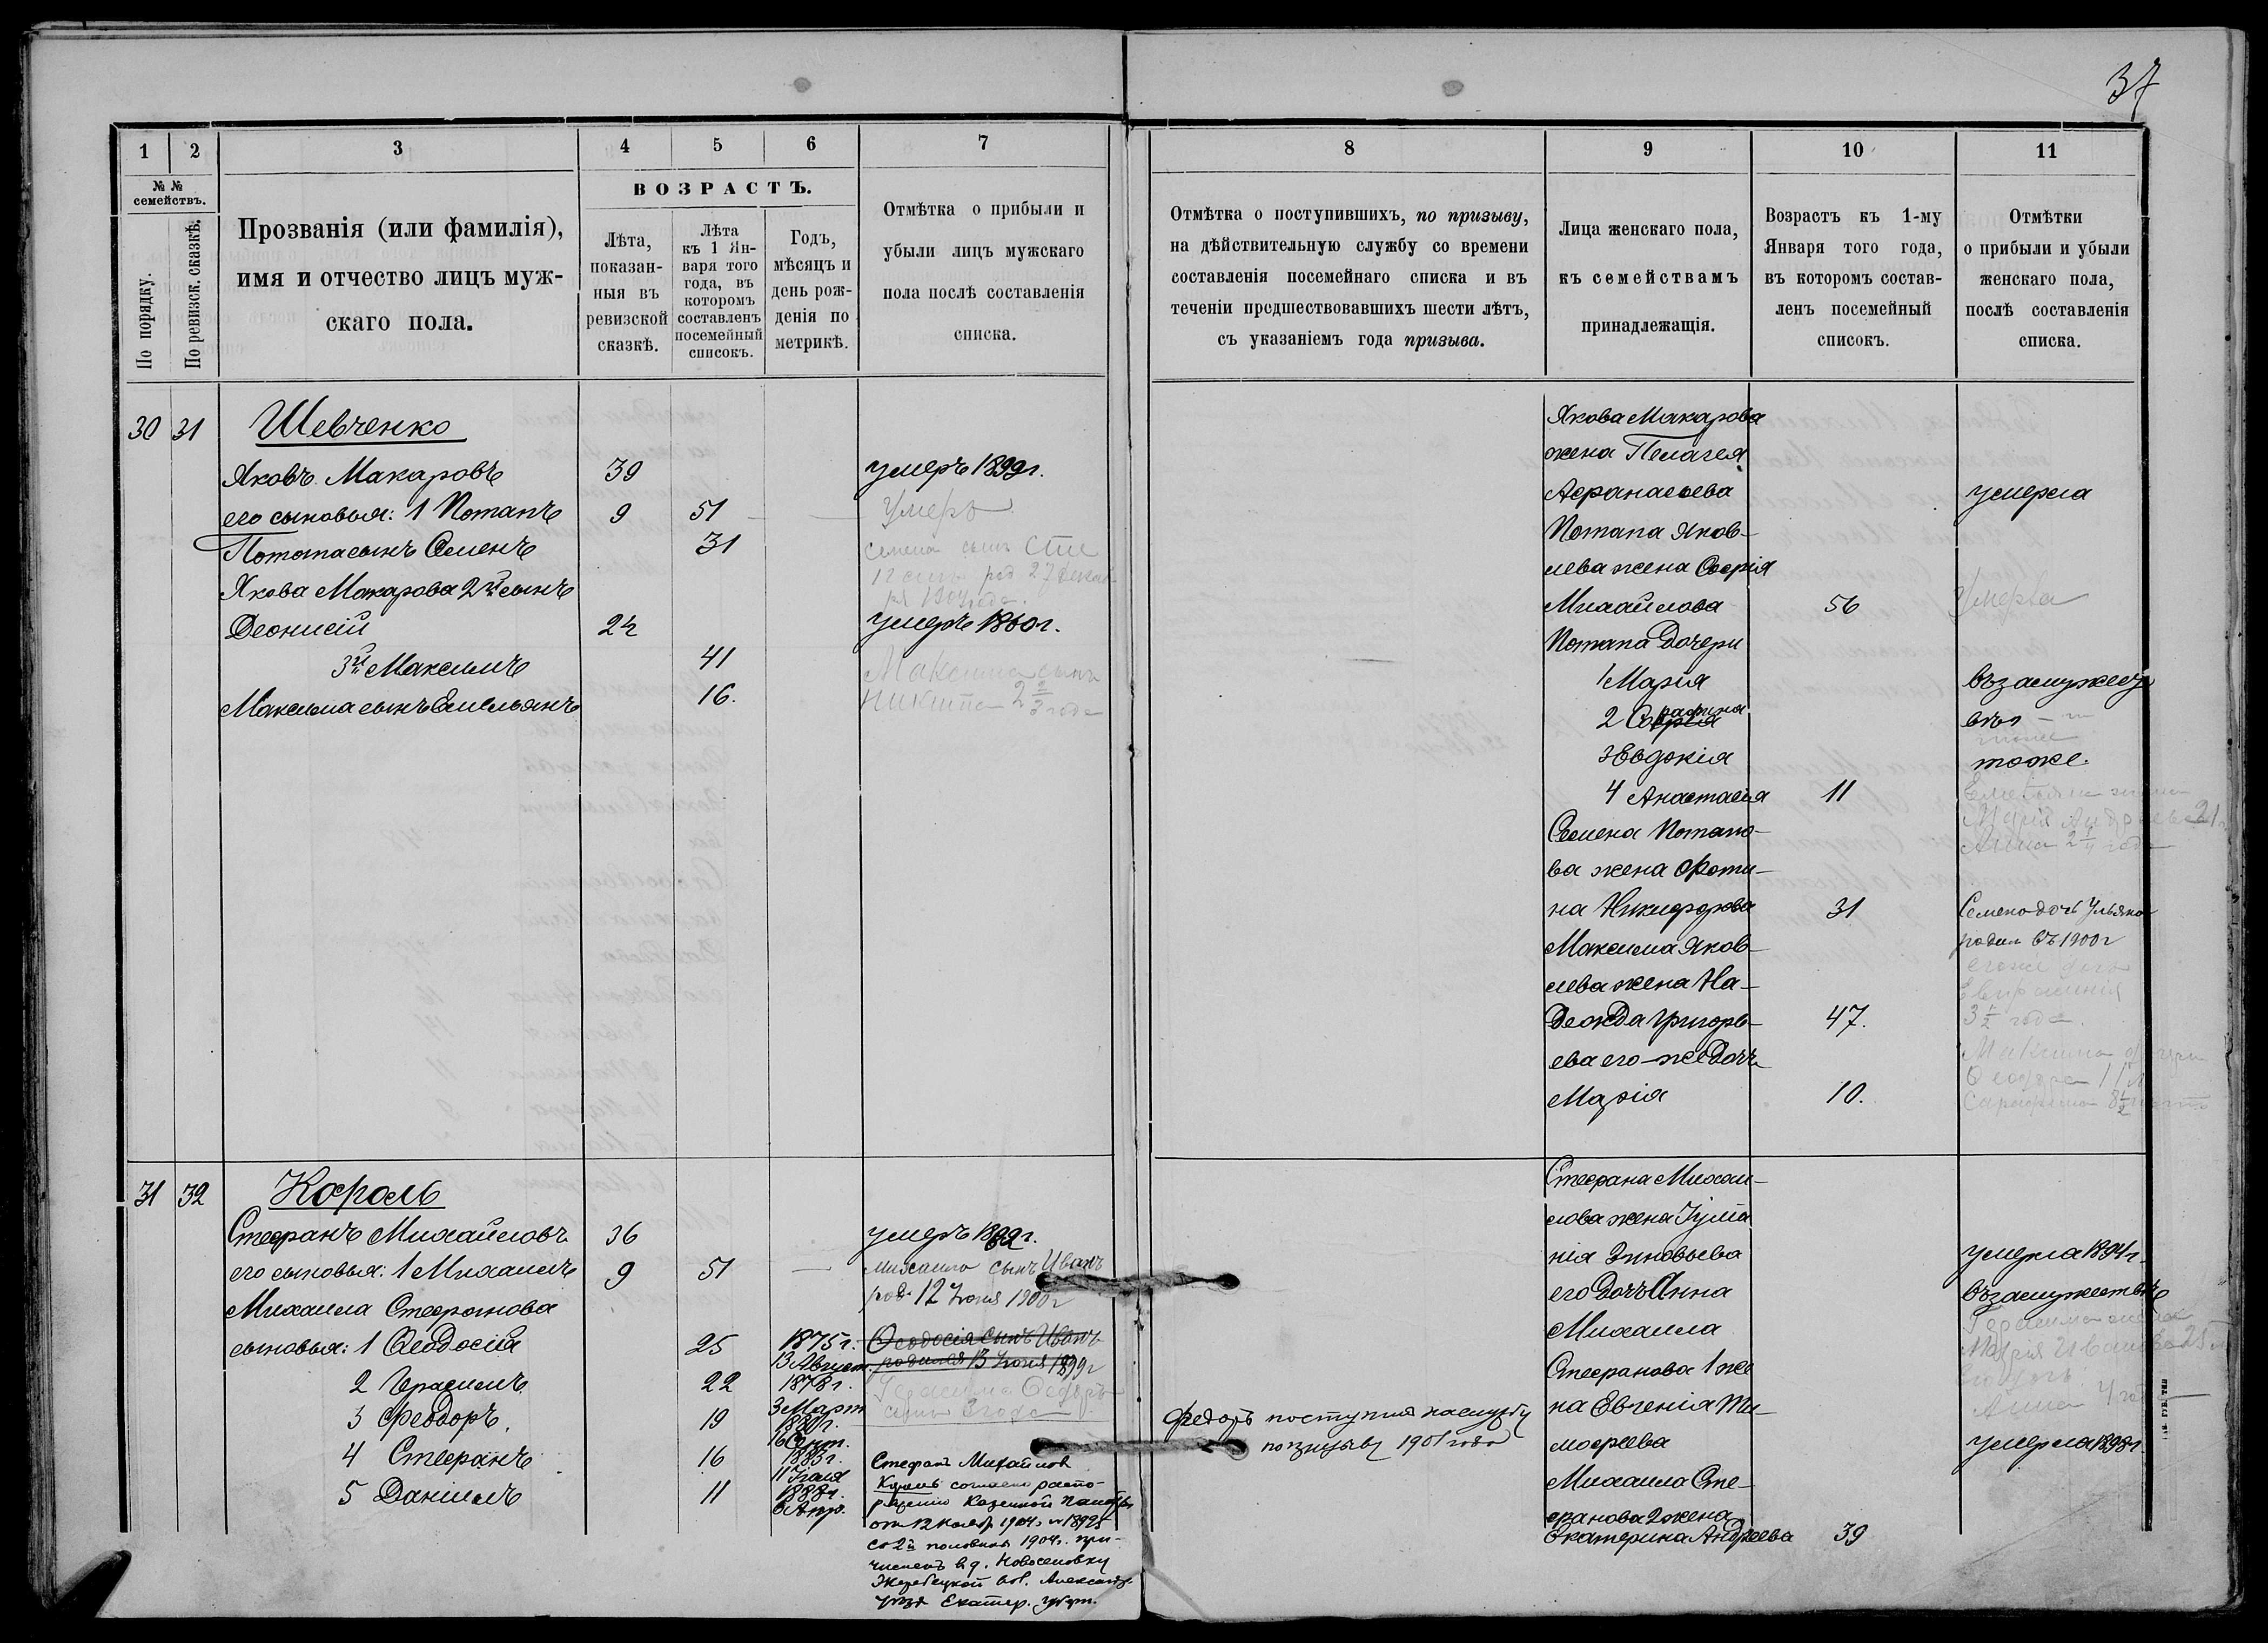 37
1
2
3
4
5
6
7
№ №
семействъ.
По порядку.
По ревизск. сказкѣ.
Прозванія (или фамилія),
имя и отчество лицъ муж-
скаго пола.
ВОЗРАСТЪ.
Лѣта,
показан-
ныя въ
ревизской
сказкѣ.
Лѣта
къ 1 Ян-
варя того
года, въ
которомъ
составленъ
посемейный
списокъ.
Годъ,
мѣсяцъ и
день рож-
денія по
метрикѣ.
Отмѣтка о прибыли и
убыли лицъ мужскаго
пола послѣ составленія
списка.
30 31 Шевченко
Яковъ Макаровъ 39 умеръ 1899г.
его сыновья: 1 Потапъ 9 51 Умеръ
Потапа сынъ Семенъ 31 Семена сынъ
род 27
Якова Макарова 2й сынъ
Деонисій 24 умеръ 1860г.
3й Максимъ 41 Максима сынъ
Максима сынъ Емельянъ 16. Никита 2 года
31 32 Король
Стефанъ Михайловъ 36 умеръ 1892г.
его сыновья: 1 Михаилъ 9 51 Михаила сынъ Иванъ
род. 12 Іюня 1900г
Михаила Стефанова
сыновья: 1 Феодосій 25 1875г. 13 Август. Феодосія сынъ Иванъ
родился 13 Іюня 1899г
2 Герасимъ 22 1878г. 3 Март Герасима Федоръ
сынъ 3 года
3 Феодоръ 19 16 Сент.
4 Стефанъ 16 1883г. 11 Іюля Стефанъ Михайлов
5 Даніилъ 11 1888г. 6 Апр. Король согласно распо-
ряженію Казенной Палаты
от 12 Нояб. 1904г. № 18925
со 2й половины 1904г. при-
численъ в д. Новоселовку
Жеребецкой вол. Александр.
уѣзд Екатер. губерн.
8
9
10
11
Отмѣтка о поступившихъ, по призыву,
на дѣйствительную службу со времени
составленія посемейнаго списка и въ
теченіи предшествовавшихъ шести лѣтъ,
съ указаніемъ года призыва.
Лица женскаго пола,
къ семействамъ
принадлежащія.
Возрастъ къ 1-му
Января того года,
въ которомъ состав-
ленъ посемейный
списокъ.
Отмѣтки
о прибыли и убыли
женскаго пола,
послѣ составленія
списка.
Якова Макарова
жена Пелагея
Афанасьева умерла
Потапа Яков-
лева жена Софія
Михайлова 56 Умерла
Потапа дочери
1 Марія въ замужест
2 Софія рафина
3 Евдокія тоже.
4 Анастасія 11 Емельяна жена
Марія Андреева 21
Семена Потапо-
Анна 2 года
ва жена Фоти-
на Никифорова 31 Семена дочь Ульяна
Максима Яков-
родил въ 1900г
лева жена На-
его же дочь
Евфросинія
дежда Григорь- 47. 3 ½ года.
ева его-же дочь
Максима дочери
Марія 10. Серафима 8 ½ лѣтъ
Стефана Михаи-
лова жена Іулiа
нія Зиновьева умерла 1894г.
его дочь Анна въ замужествѣ
Михаила Герасима жена
Марія Иванова 25 л
Стефанова 1 же
его дочь
на Евгенія Ти- Анна
мофеева умерла 1898г.
Федоръ поступилъ на службу
по призыву 1901 года
Михаила Сте-
фанова 2 жена
Екатерина Андреева 39